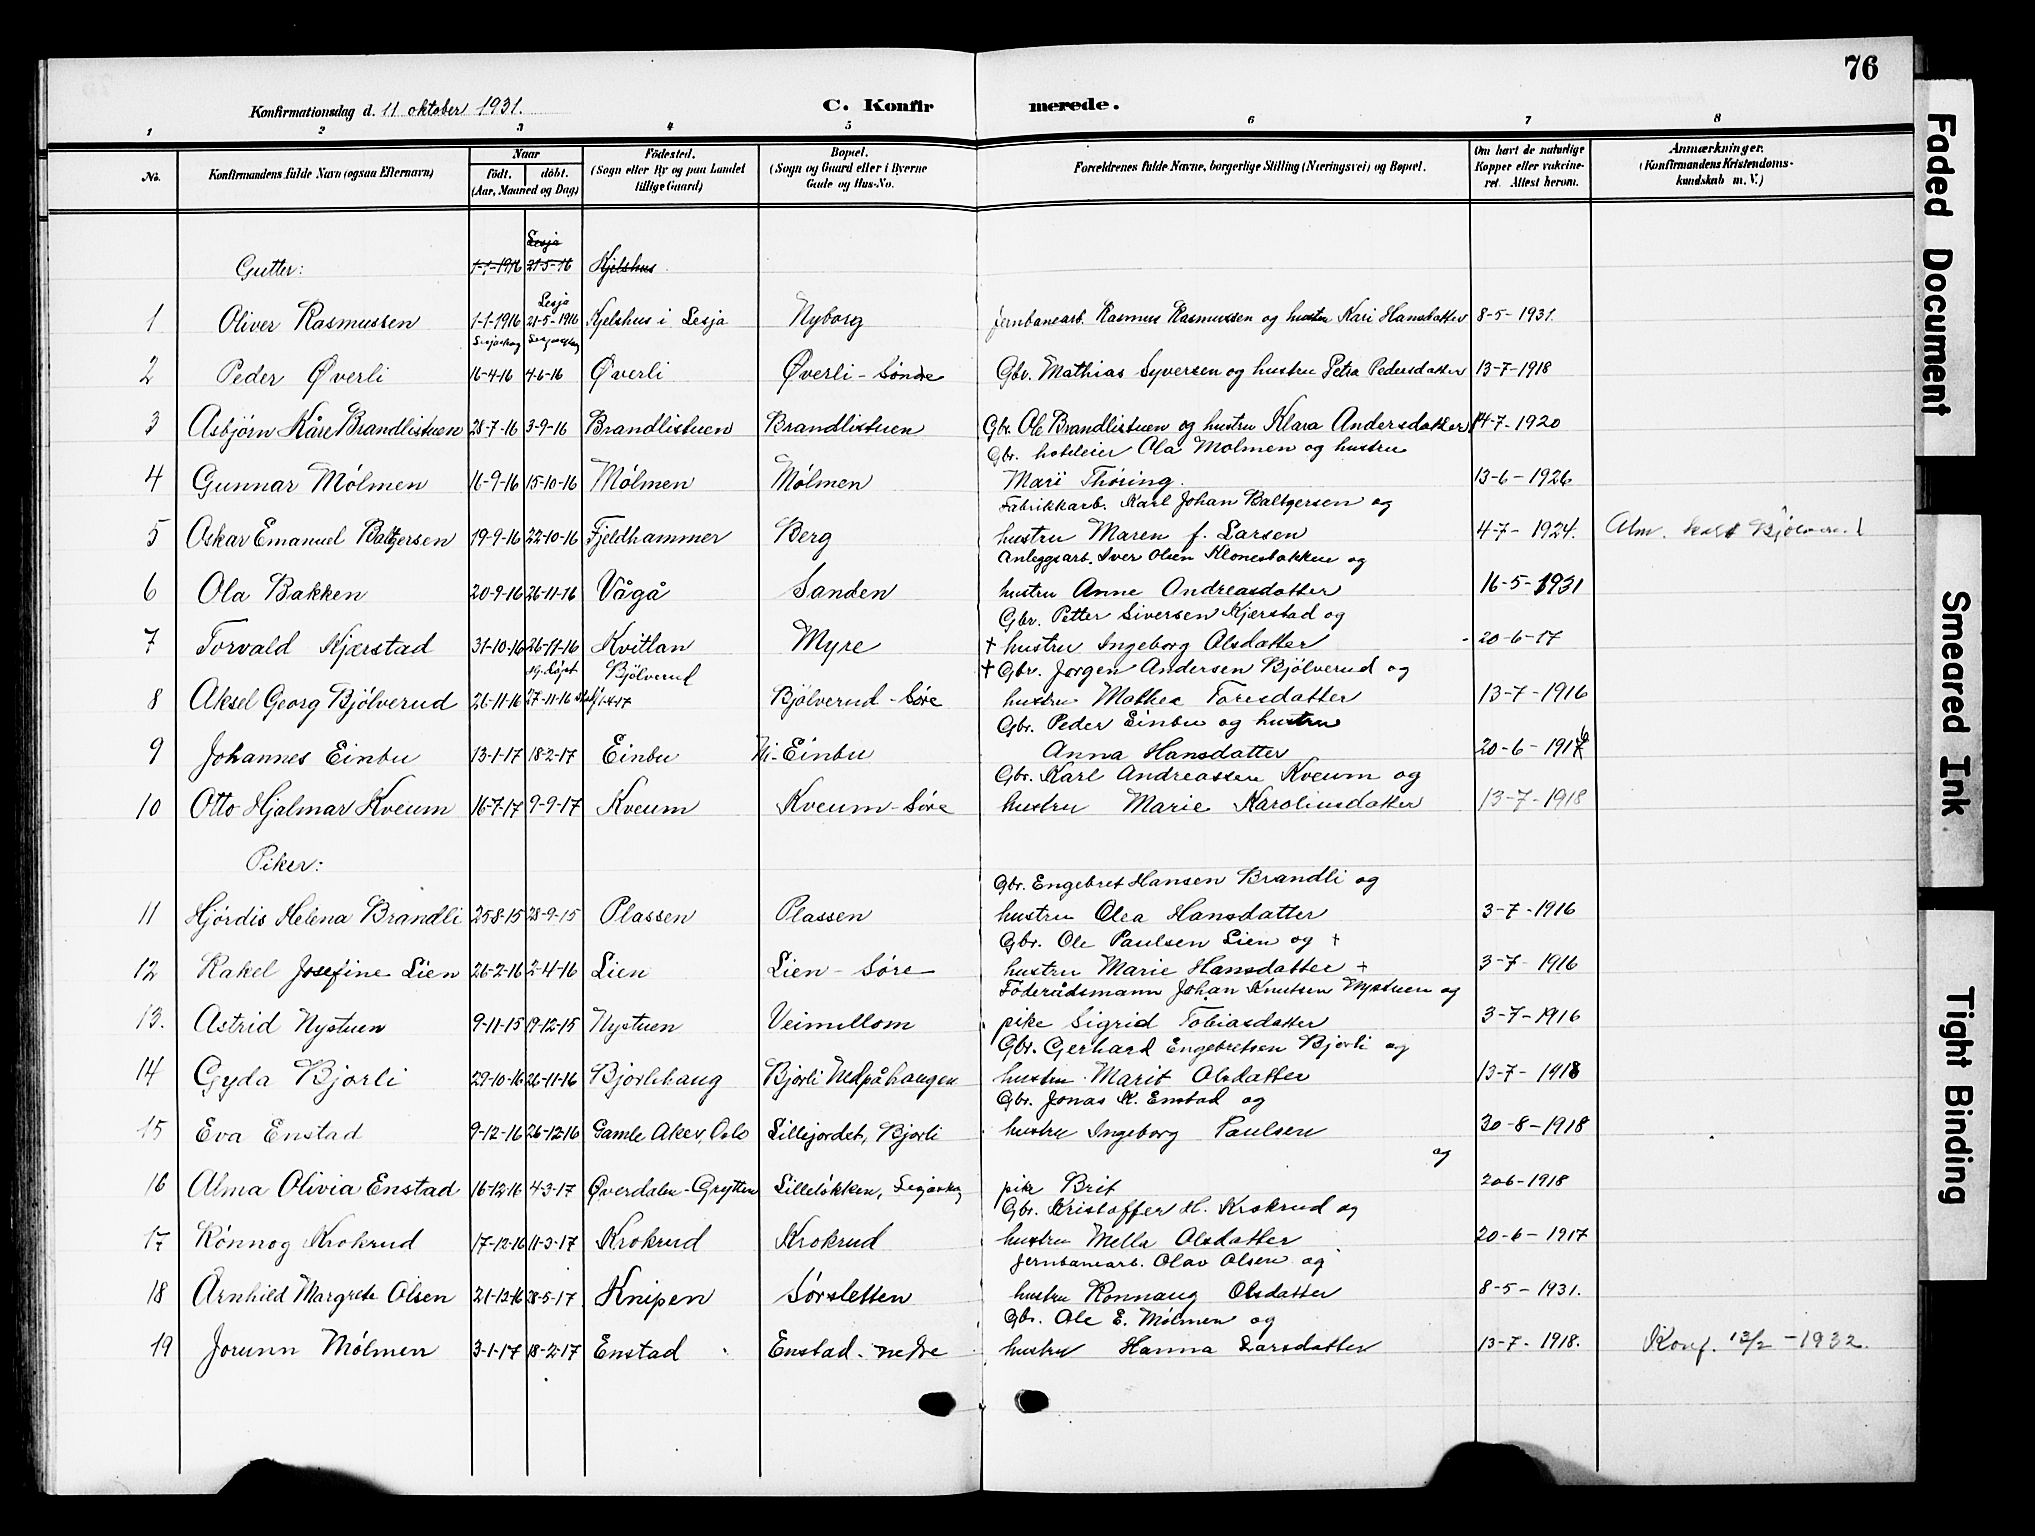 76
Konfirmationsdag d. 11 oktober 1931.
C. Konfirmerede.
1 2 3 4 5 6 7 8
No.
Konfirmandens fulde Navn (ogsaa Efternavn)
Naar
født. døbt.
(Aar, Maaned og Dag)
Fødested.
(Sogn eller By og paa Landet
tillige Gaard)
Bopæl.
(Sogn og Gaard eller i Byerne
Gade og Hus-No.
Forældrenes fulde Navne, borgerlige Stilling (Næringsvei) og Bopæl.
Om havt de naturlige
Kopper eller vakcine-
ret. Attest herom.
Anmærkninger.
(Konfirmandens Kristendoms-
kundskab m. V.)
Lesja
Gutter: 1-1-1916 21-5-16 Kjelshus
Lesja
1 Oliver Rasmussen 1-1-1916 21-5-1916 Kjelshus i Lesja Nyborg Jernbanearb. Rasmus Rasmussen og hustru Kari Hansdatter 8-5-1931
Lesjaskog Lesjaskog
2 Peder Øverli 16-4-16 4-6-16 Øverli Øverli-Søndre Gbr. Mathias Syversen og hustru Petra Pedersdatter 13-7-1918
3 Asbjørn Kåre Brandlistuen 28-7-16 3-9-16 Brandlistuen Brandlistuen Gbr. Ole Brandlistuen og hustru Klara Andersdatter 14-7-1920
Gbr. hoteleier Ola Mølmen og hustru
4 Gunnar Mølmen 16-9-16 15-10-16 Mølmen Mølmen Mari Thøring. 13-6-1926
Fabrikkarb. Karl Johan Baltzersen og
5 Oskar Emanuel Baltzersen 19-9-16 22-10-16 Fjeldhammer Berg hustru Maren f. Larsen 4-7-1924. Alm.
Anleggsarb. Iver Olsen Klonesbakken og
6 Ola Bakken 20-9-16 26-11-16 Vågå Sanden hustru Anne Andreasdatter 16-5-1931
Gbr. Petter Siversen Kjærstad og
7 Torvald Kjærstad 31-10-16 26-11-16 Kvitlan Myre + hustru Ingeborg Olsdatter 20-6-17
Hj. døpt Bjølverud + Gbr. Jørgen Andersen Bjølverud og
8 Aksel Georg Bjølverud 26-11-16 27-11-16 Bjølverud-Søre hustru Mathea Toresdatter 13-7-1916
Gbr. Peder Einbu og hustru
9 Johannes Einbu 13-1-17 18-2-17 Einbu N.-Einbu Anna Hansdatter 20-6-1917
Gbr. Karl Andreassen Kveum og
10 Otto Hjalmar Kveum 16-7-17 9-9-17 Kveum Kveum-Søre hustru Marie Karoliusdatter 13-7-1918
Piker:
Gbr. Engebret Hansen Brandli og
11 Hjørdis Helena Brandli 25-8-15 28-9-15 Plassen Plassen hustru Olea Hansdatter 3-7-1916
Gbr. Ole Paulsen Lien og +
12 Rakel Josefine Lien 26-2-16 2-4-16 Lien Lien-Søre hustru Marie Hansdatter + 3-7-1916
Føderådsmann Johan Knutsen Nystuen og
13. Astrid Nystuen 9-11-15 19-12-15 Nystuen Veimellom pike Sigrid Tobiasdatter 3-7-1916
Gbr. Gerhard Engebretsen Bjorli og
14 Gyda Bjorli 29-10-16 26-11-16 Bjorlihaug Bjorli Nedpåhaugen hustru Marit Olsdatter 13-7-1918
Gbr. Jonas K. Enstad og
15 Eva Enstad 9-12-16 26-12-16 Gamle Aker, Oslo Lillejordet, Bjorli hustru Ingeborg Paulsen 30-8-1918
og
16 Alma Olivia Enstad 16-12-16 4-3-17 Øverdalen-Grytten Lilleløkken, Lesjaskog pike Brit 20-6-1918
Gbr. Kristoffer H. Krokrud og
17 Rønnog Krokrud 17-12-16 11-3-17 Krokrud Krokrud hustru Mella Olsdatter 20-6-1917
Jernbanearb. Olav Olsen og
18 Arnhild Margrete Olsen 21-12-16 28-5-17 Knipen Sørsletten hustru Rønnaug Olsdatter 8-5-1931.
Gbr. Ole E. Mølmen og
19 Jorunn Mølmen 3-1-17 18-2-17 Enstad Enstad-nedre hustru Hanna Larsdatter 13-7-1918. Konf. 12/2-1932.
Faded Document
Smeared Ink
Tight Binding